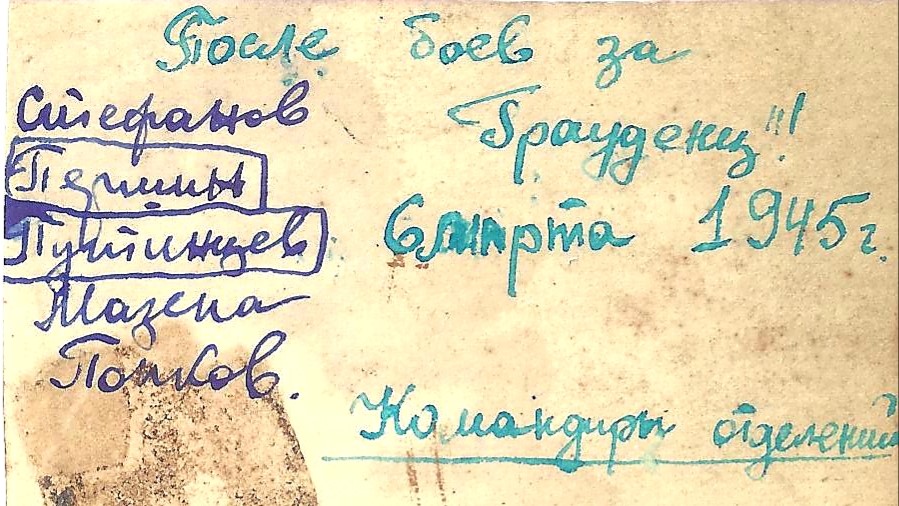 После боев за
Грауденц!!!
6 марта 1945 г.
Стефанов
Путинцев
Мазепа
Попков.
Командиры отделений